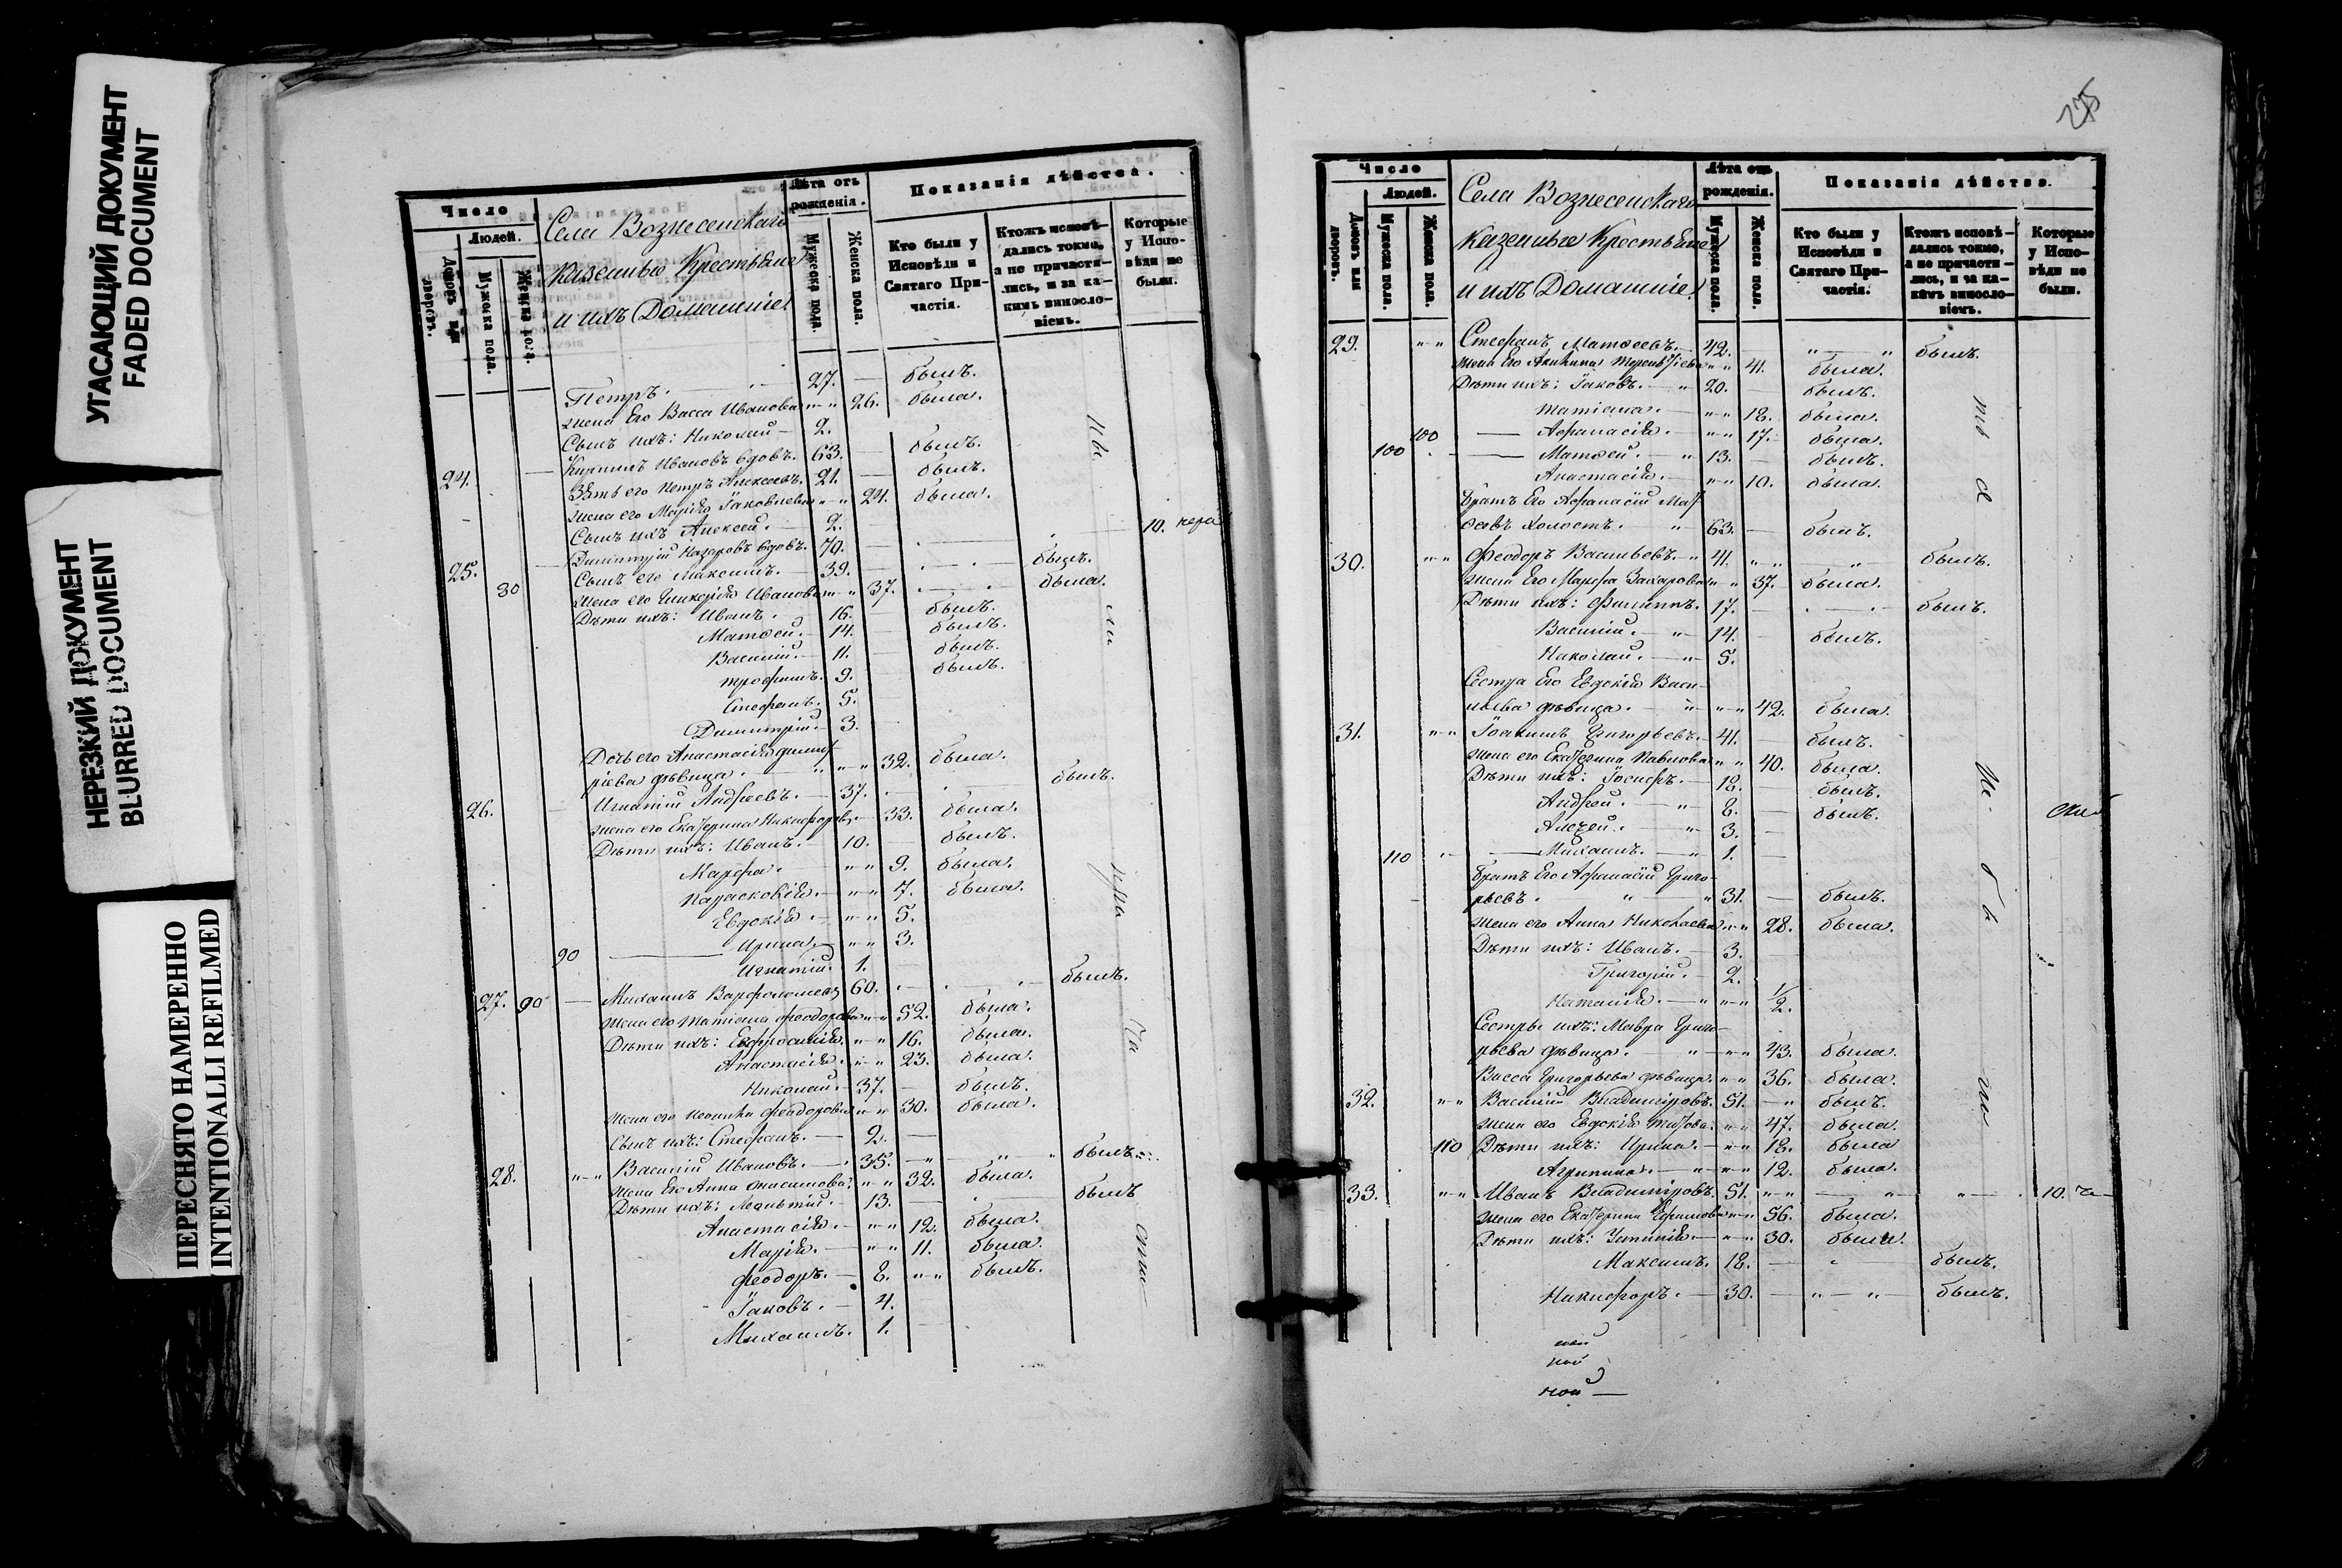 УГАСАЮЩИЙ ДОКУМЕНТ
FADED DOCUMENT
НЕРЕЗКИЙ ДОКУМЕНТ
BLURRED DOCUMENT
ПЕРЕСНЯТО НАМЕРЕННО
INTENTIONALLI REFILMED
Число
Людей.
Домовъ или дворовъ.
Мужеска пола.
Женска пола.
Села Вознесенскаго
казенные Крестьяне
и ихъ Домашніе.
Лѣта отъ рожденія.
Мужеска пола.
Женска пола.
Показанія дѣйства.
Кто были у Исповѣди и Святаго Причастія.
Ктожъ исповѣдались токмо, а не причастились, и за какимъ винословіемъ.
Которые у Исповѣди не были.
Петръ. 27. былъ.
жена Его Васса Иванова 26. была.
Сынъ ихъ: Николай 2.
24. Кириллъ Ивановъ вдовъ. 63. былъ.
Зять его Петръ Алексеевъ. 21. былъ.
жена его Марія Іаковлева 24. была.
Сынъ ихъ Алексей. 2.
25. Димитрій Назаровъ вдовъ. 70. 10.
30 Сынъ его Максимъ. 39. былъ.
жена его Гликерія Иванова 37. была.
Дѣти ихъ: Иванъ. 16. былъ.
Матѳей. 14. былъ.
Василій. 11. былъ.
Трофимъ. 9. былъ.
Стефанъ. 5.
Димитрій. 3.
Дочь его Анастасія Димит
ріева дѣвица. 32. была.
26. Игнатій Андреевъ. 37. былъ.
жена его Екатерина Никифорова 33. была.
Дѣти ихъ: Иванъ. 10. былъ.
Марфа. 9. была.
Парасковія. 7. была.
Евдокія. 5.
90 Ирина. 3.
Игнатій. 1.
27. 90 Михаилъ Варфоломеевъ 60. былъ.
жена его Татіана Феодорова 52. была.
Дѣти ихъ: Евфросинія. 16. была.
Анастасія. 23. была.
Николай. 37. былъ.
жена его Феодорова 30. была.
Сынъ ихъ: Стефанъ. 2.
28. Василій Ивановъ. 35. былъ.
жена Его Анна Онисимова. 32. была.
Дѣти ихъ: Леонтій. 13. былъ
Анастасія. 12. была.
Марія. 11. была.
Феодоръ. 8. былъ.
Іаковъ. 4.
Михаилъ. 1.
275
Число
Людей.
Домовъ или дворовъ.
Мужеска пола.
Женска пола.
Села Вознесенскаго
казенные Крестьяне
и ихъ Домашніе.
Лѣта отъ рожденія.
Мужеска пола.
Женска пола.
Показанія дѣйства.
Кто были у Исповѣди и Святаго Причастія.
Ктожъ исповѣдались токмо, а не причастились, и за какимъ винословіемъ.
Которые у Исповѣди не были.
29. Стефанъ Матѳеевъ. 42. былъ.
жена Его Акилина Терентіева 41. была.
Дѣти ихъ: Іаковъ. 20. былъ.
Татіана. 18. была.
100 Афанасія. 17. была.
100 Матѳей. 13. былъ.
Анастасія. 10. была.
Братъ Его Афанасій Мат
ѳеевъ холостъ. 63. былъ.
30. Феодоръ Васильевъ. 41. былъ.
жена Его Марфа Захарова 37. была.
Дѣти ихъ: Филиппъ. 17. былъ.
Василій. 14. былъ.
Николай. 5.
Сестра Его Евдокія Васи-
льева дѣвица. 42. была.
31. Іоаннъ Григорьевъ. 41. былъ.
жена его Екатерина Павлова 40. была.
Дѣти ихъ: Іосифъ. 12. былъ.
Андрей. 8. былъ.
Алексей. 3.
110 Михаилъ. 1.
Братъ Его Афанасій Григо-
рьевъ. 31. былъ.
жена его Анна Николаева 28. была.
Дѣти ихъ: Иванъ. 3.
Григорій. 2.
Наталія. 1/2.
Сестры ихъ: Мавра Григо-
рьева дѣвица. 43. была.
Васса Григорьева дѣвица. 36. была.
32. Василій Владиміровъ. 51. былъ.
жена его Евдокія Титова. 47. была.
110 Дѣти ихъ: Ирина. 18. была
Агрипина. 12. была.
33. Иванъ Владиміровъ. 51. 10.
жена его Екатерина Ефимова 56. была.
Дѣти ихъ: Устинія. 30. была.
Максимъ. 18. былъ.
Никифоръ. 30. былъ.